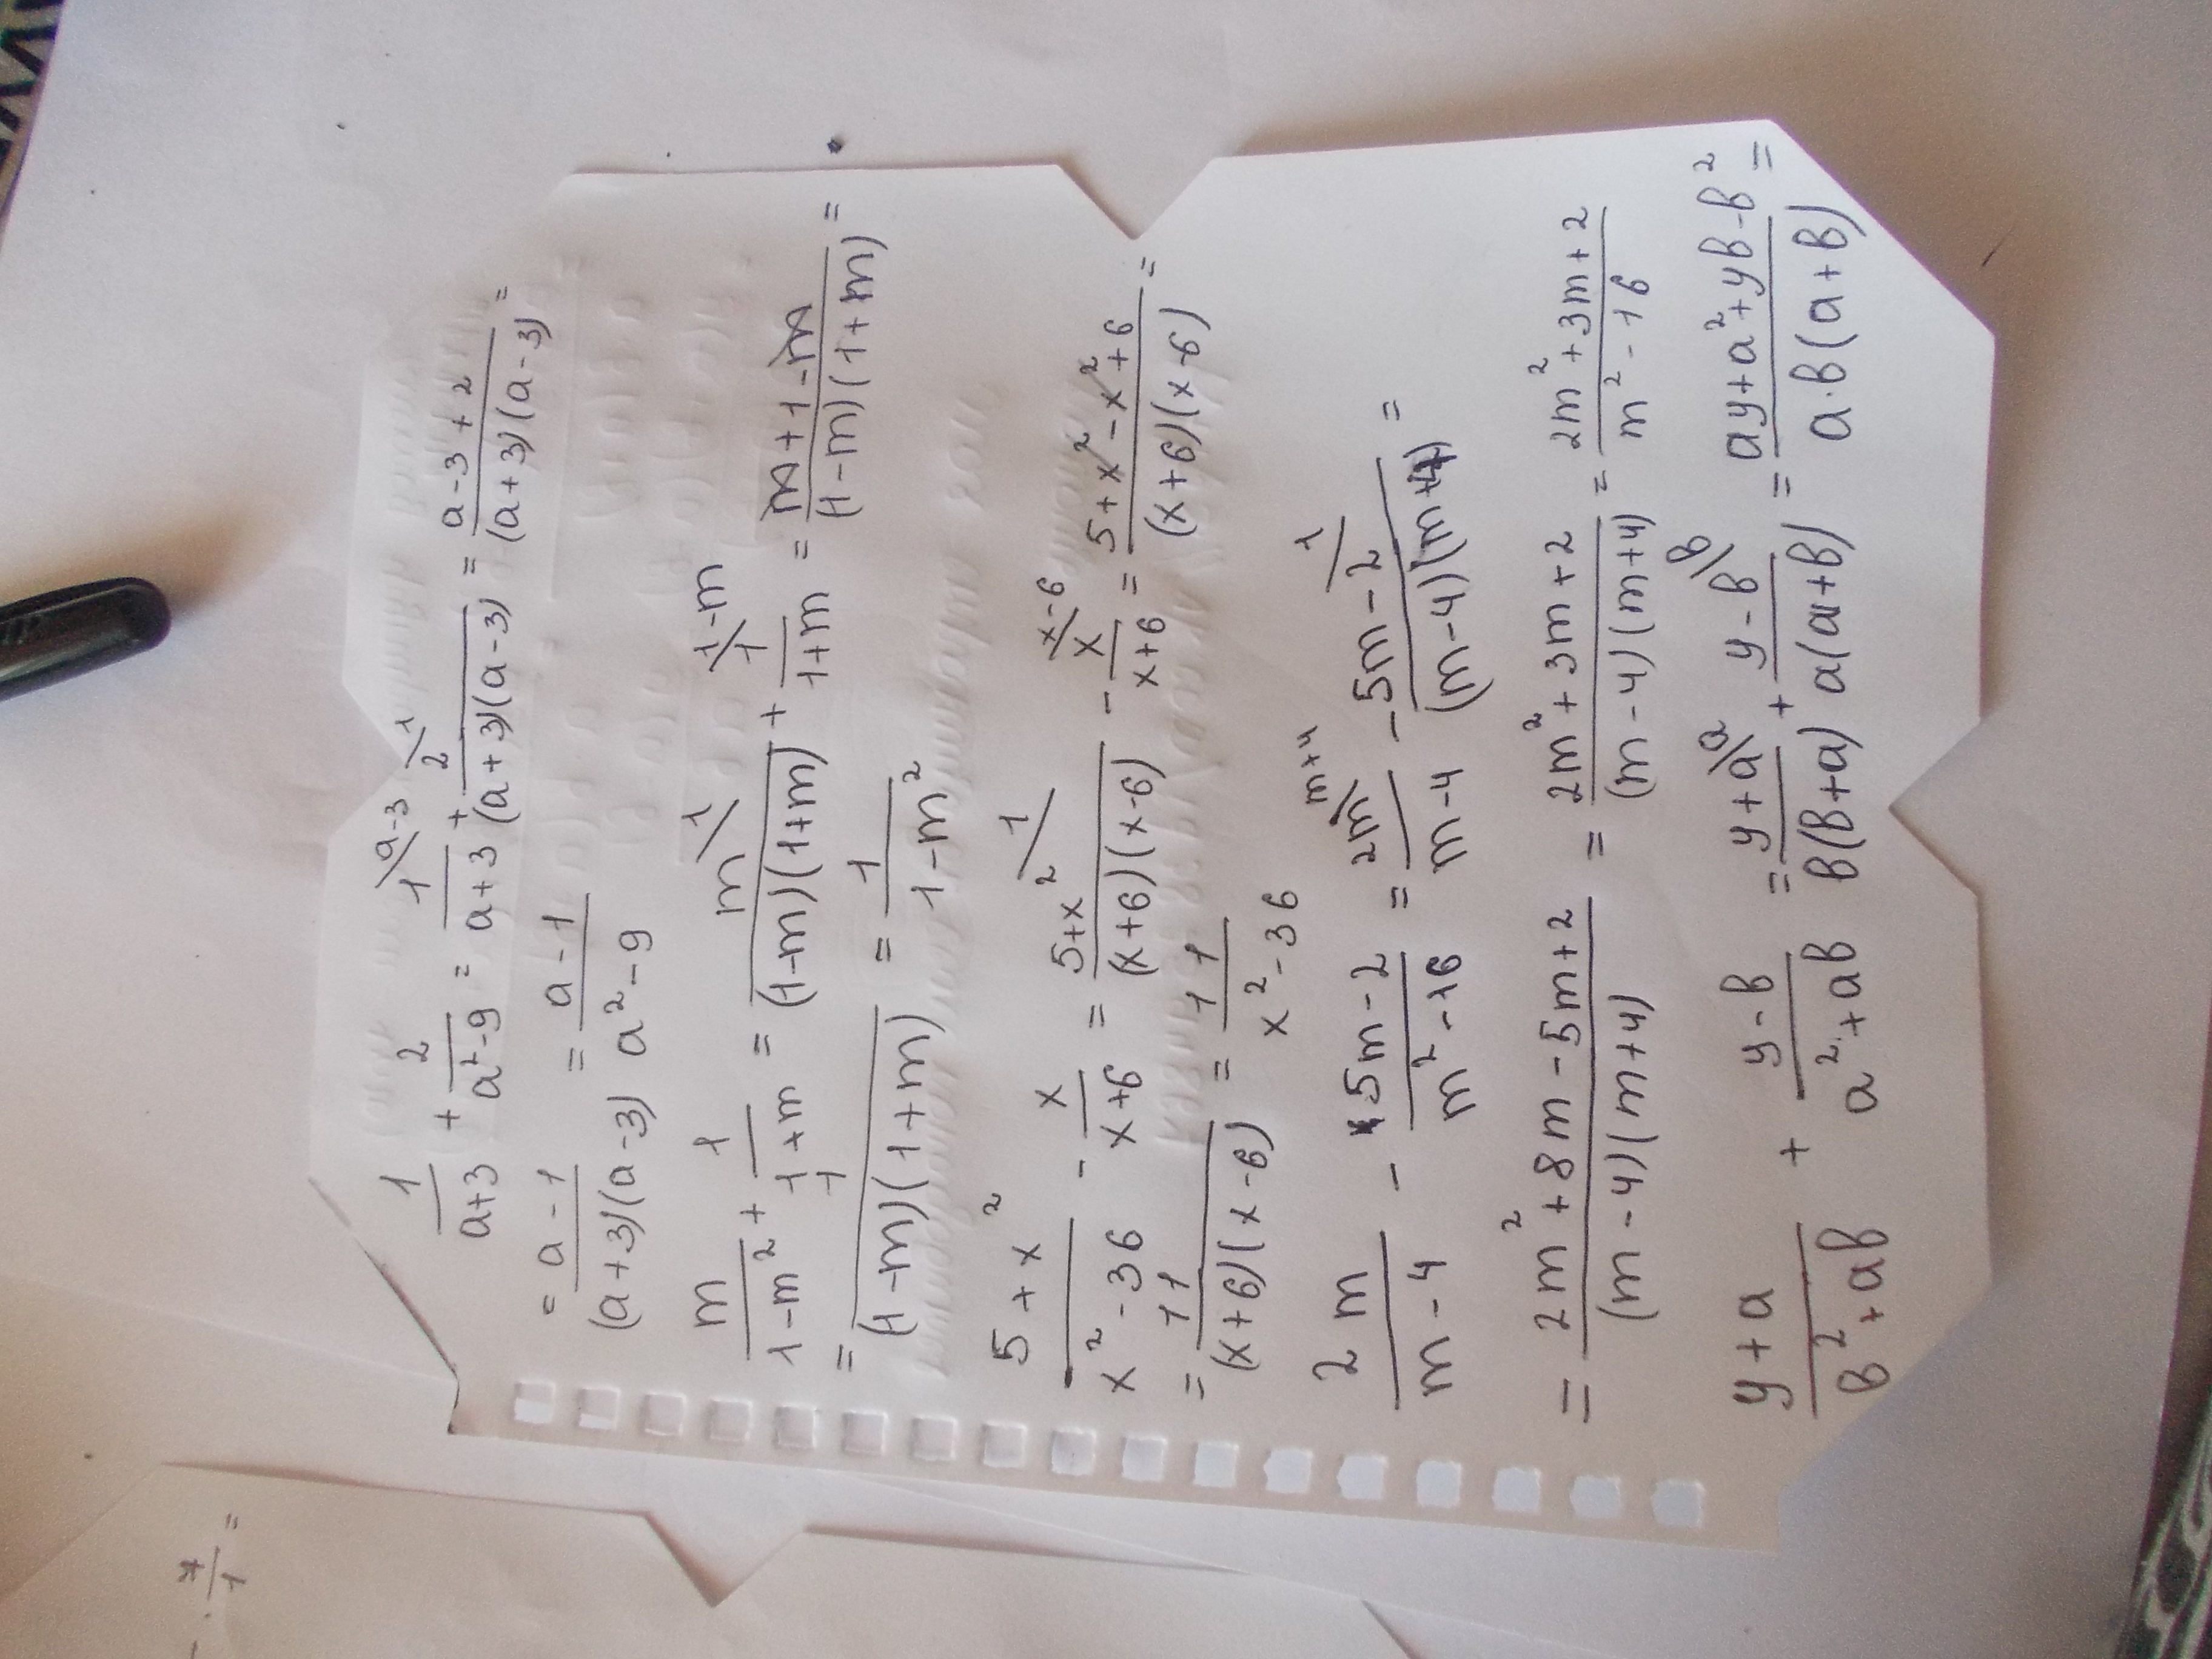 1/(a+3) + 2/(a²-9) = 1\a-3/(a+3) + 2/1/((a+3)(a-3)) = (a-3+2)/((a+3)(a-3)) =
= (a-1)/((a+3)(a-3)) = (a-1)/(a²-9)
m/(1-m²) + 1/(1+m) = m\1/((1-m)(1+m)) + 1\1-m/(1+m) = (m+1-m)/((1-m)(1+m)) =
= 1/((1-m)(1+m)) = 1/(1-m²)
(5+x²)/(x²-36) - x/(x+6) = (5+x²)/1/((x+6)(x-6)) - x\x-6/(x+6) = (5+x²-x²+6)/((x+6)(x-6)) =
= 11/((x+6)(x-6)) = 11/(x²-36)
2m/(m-4) - (5m-2)/(m²-16) = 2m\m+4/(m-4) - (5m-2)/1/((m-4)(m+4)) =
= (2m²+8m-5m+2)/((m-4)(m+4)) = (2m²+3m+2)/((m-4)(m+4)) = (2m²+3m+2)/(m²-16)
(y+a)/(b²+ab) + (y-b)/(a²+ab) = (y+a)\a/(b(b+a)) + (y-b)\b/(a(a+b)) = (ay+a²+yb-b²)/(a·b(a+b)) =